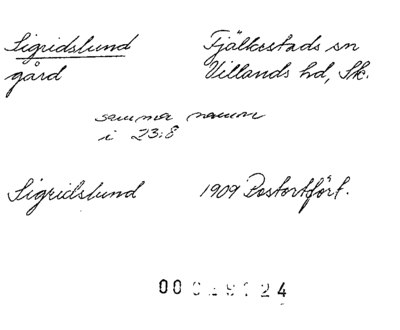 Sigridslund Fjälkestads sn
gård Villands hd, Sk.
samma namn
i 23:8
Sigridslund 1909 Postortförf.